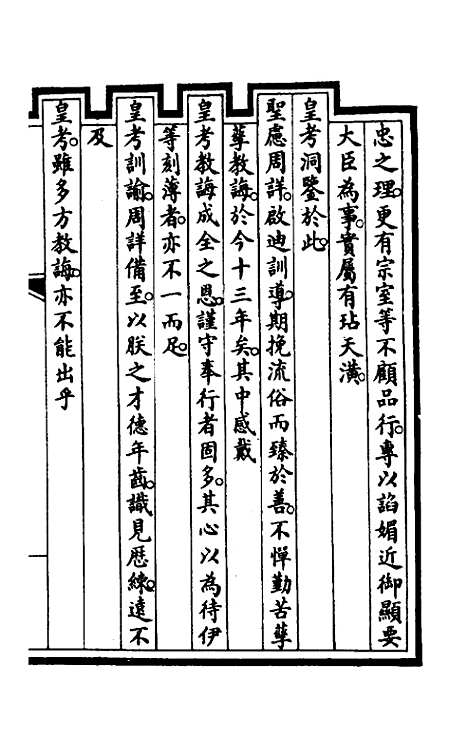 忠之理更有宗室等不顧品行專以諂媚近御顯要
大臣為事實屬有玷天潢
皇考洞鑒於此
聖慮周詳啟迪訓導期挽流俗而臻於善不憚勤苦孳
孳教誨於今十三年矣其中感戴
皇考教誨成全之恩謹守奉行者固多其心以為待伊
等刻薄者亦不一而足
皇考訓諭周詳備至以朕之才德年齒識見歷練遠不
及
皇考雖多方教誨亦不能出乎